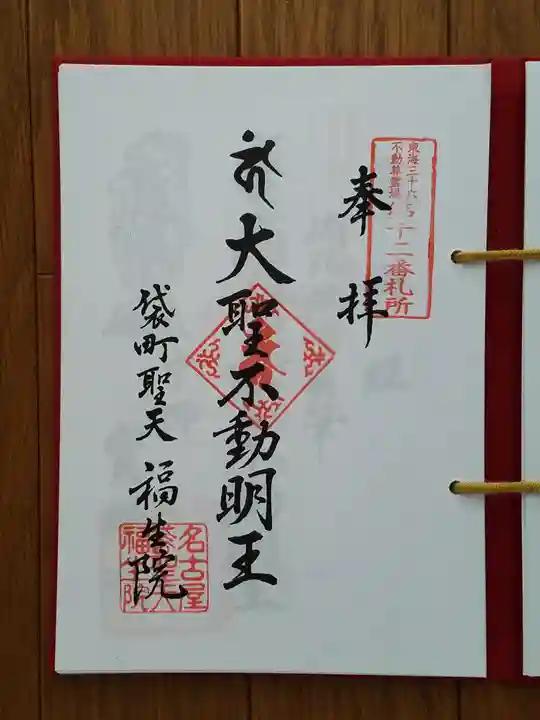 東海三十六
不動尊霊場
十二番札所
奉拝
大聖不動明王
袋町聖天 福生院
名古屋
福生院